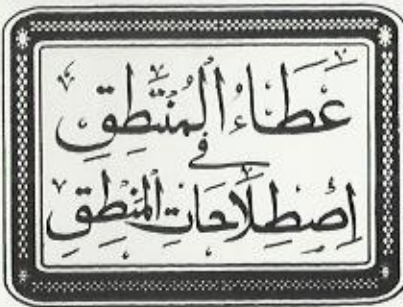 عَطَاءُ الْمُنْطِقِ
فِي
اِصْطِلَاحَاتِ الْمَنْطِقِ